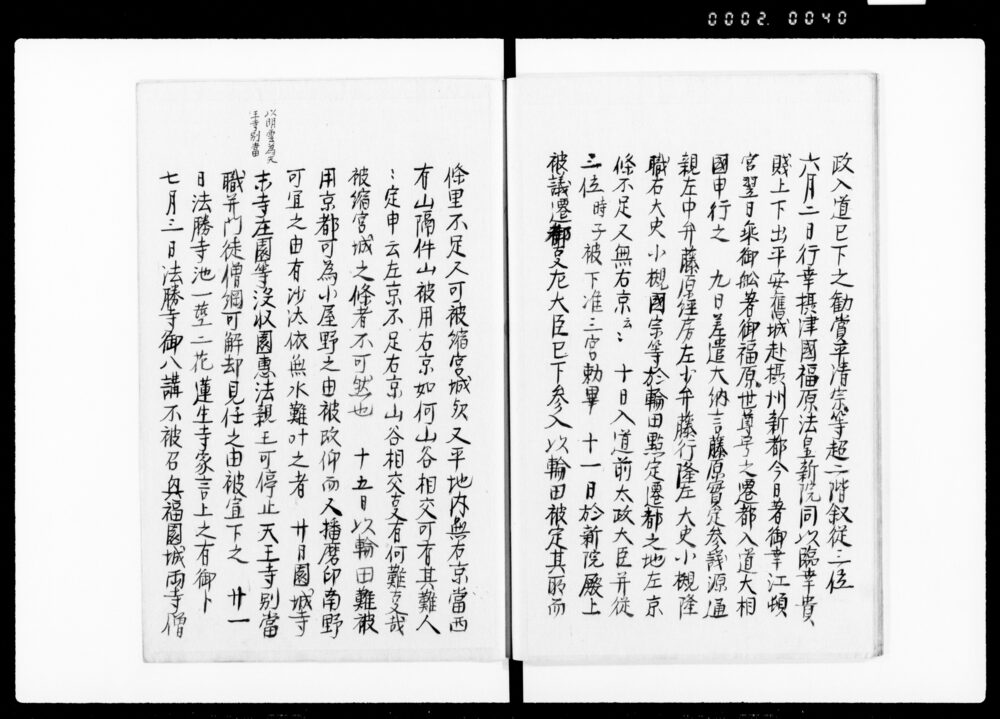 0002. 0040
政入道已下之勧賞平清宗等超二階叙従三位
六月二日行幸摂津國福原法皇新院同以臨幸貴
賤上下出平安舊城赴摂州新都今日著御幸江頓
宮翌日乗御舩著御福原世尊号之遷都入道大相
國申行之　九日差遣大納言藤原實定参議源通
親左中弁藤原経房左少弁藤行隆左大史小槻隆
職右大史小槻國宗等於輪田點定遷都之地左京
條不足又無右京云〻　十日入道前太政大臣并従
三位時子被下准三宮勅畢　十一日於新院殿上
被議遷都支左大臣已下参入以輪田被定其所而
條里不足又可被縮宮城欤又平地内無右京當西
有山隔件山被用右京如何山谷相交可有其難人
〻定申云左京不足右京山谷相交支有何難支哉
被縮宮城之條者不可然也　十五日以輪田難被
用京都可為小屋野之由被改仰而又播磨印南野
可宜之由有沙汰依無水難叶之者　廿日園城寺
末寺庄園等没収園惠法親王可停止天王寺別當
職并門徒僧綱可解却見任之由被宣下之　廿一
以明雲為天
王寺別當
日法勝寺池一莖二花蓮生寺家言上之有御卜
七月三日法勝寺御八講不被召興福園城両寺僧